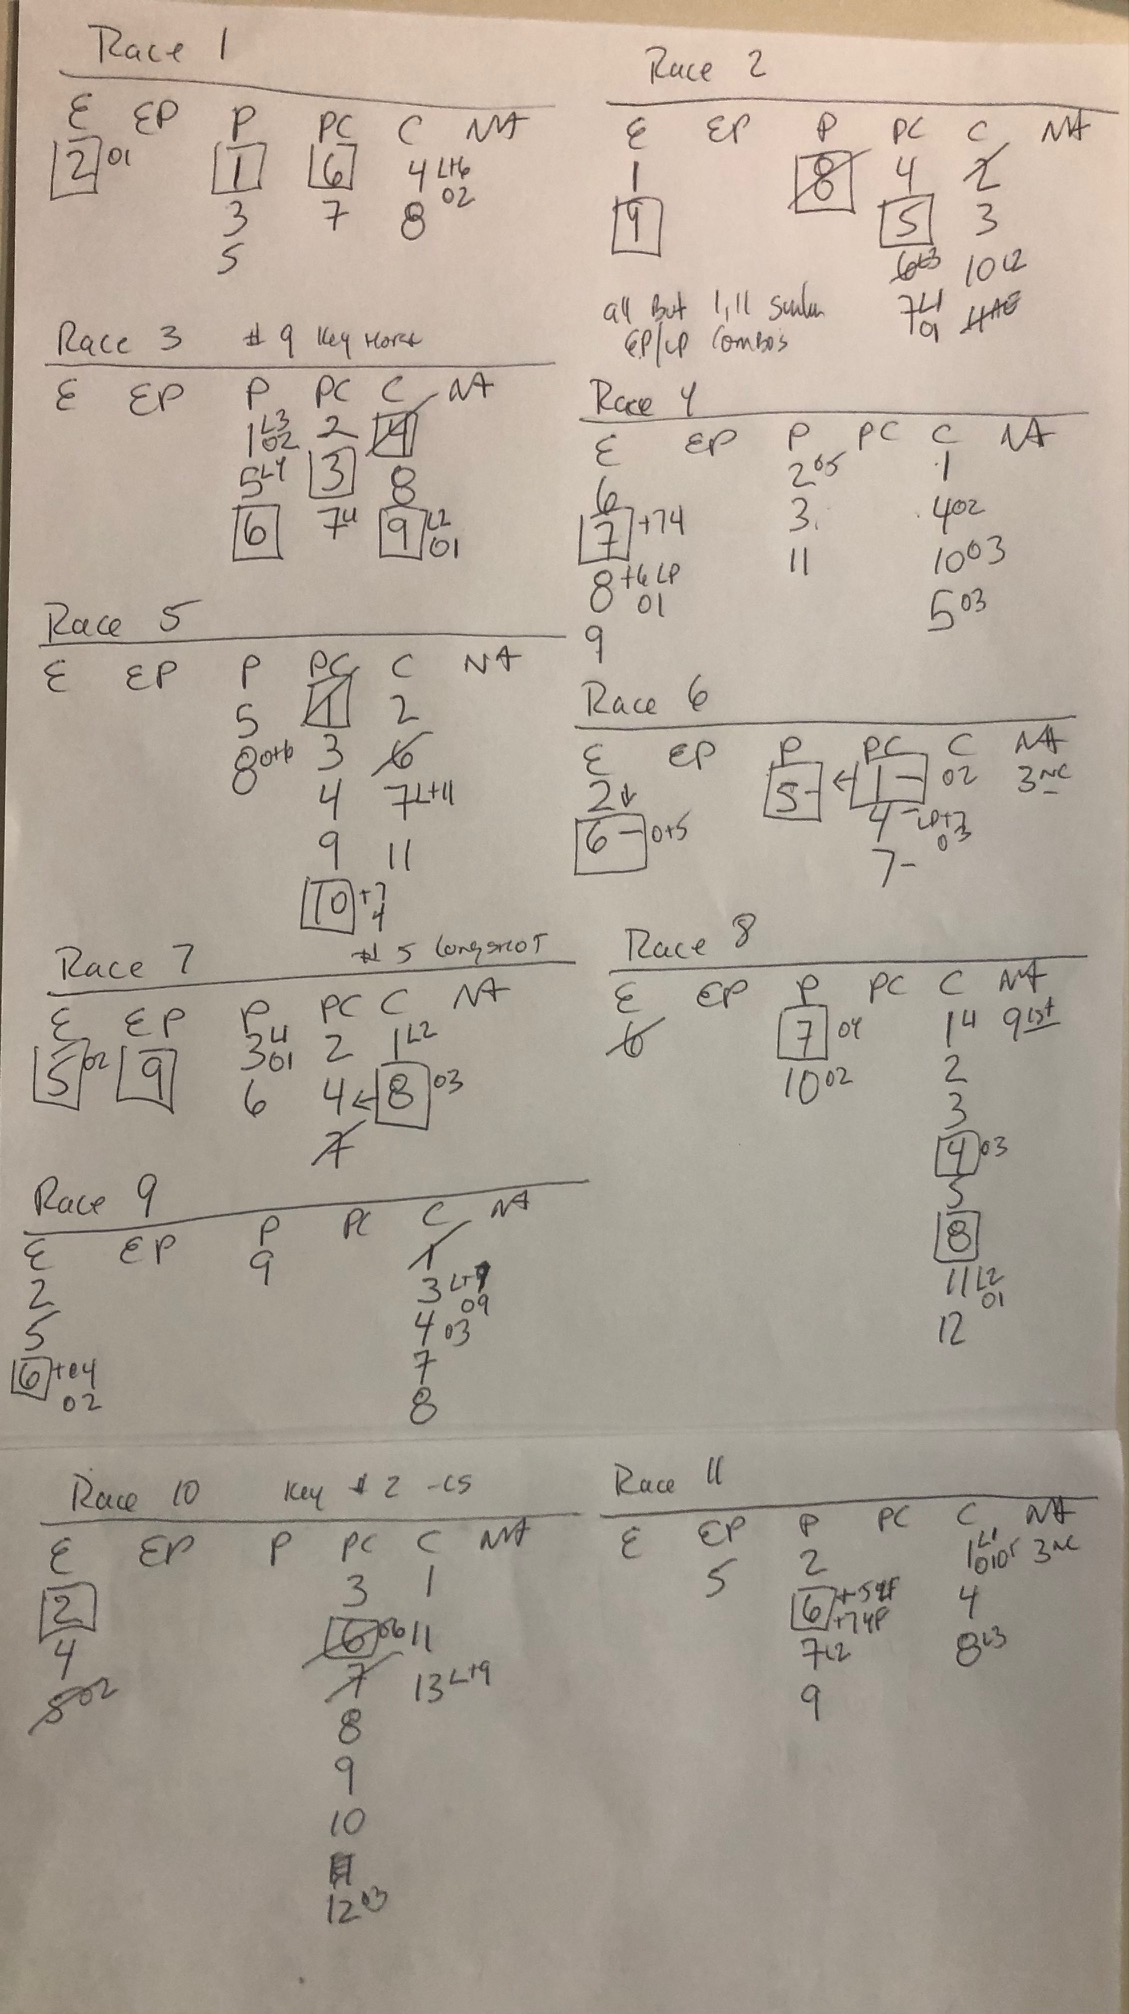 Race 1
E EP P PC C NA
2 01 1 6 4 L+6
02
3 7 8
5
Race 2
E EP P PC C NA
1 8 4 2
9 5 3
6 L3 10 L2
all But 1, 11 EP/LP Combos
7 L1
01
Race 3 #9 Key Horse
E EP P PC C NA
1 L3 02 2 4
5 L4 3 8
6 7 9 L2 01
Race 4
E EP P PC C NA
6 2 05 1
7 +74 3 4 02
8 +6 LP 01 11 10 03
9 5 03
Race 5
E EP P PC C NA
5 1 2
8 0+6 3 6
4 7 L+11
9 11
10 +7
Race 6
E EP P PC C NA
2 5 - ← 1 - 02 3 NC
6 - 0+5 4 - 03
7 -
Race 7 #5 Longshot
E EP P PC C NA
5 02 9 3 01 2 1 L2
6 4 ← 8 03
7
Race 8
E EP P PC C NA
6 7 04 1 9 1st
10 02 2
3
4 03
5
8
11 L2
01
12
Race 9
E EP P PC C NA
2 9 1
5 3
09
6 +04 4 03
02 7
8
Race 10 Key #2 -LS
E EP P PC C NA
2 3 1
4 6 06 11
8 02 7 13 L+9
8
9
10
12 03
Race 11
E EP P PC C NA
5 2 1 L1 3 NC
6 4
7 L2 8 L3
9